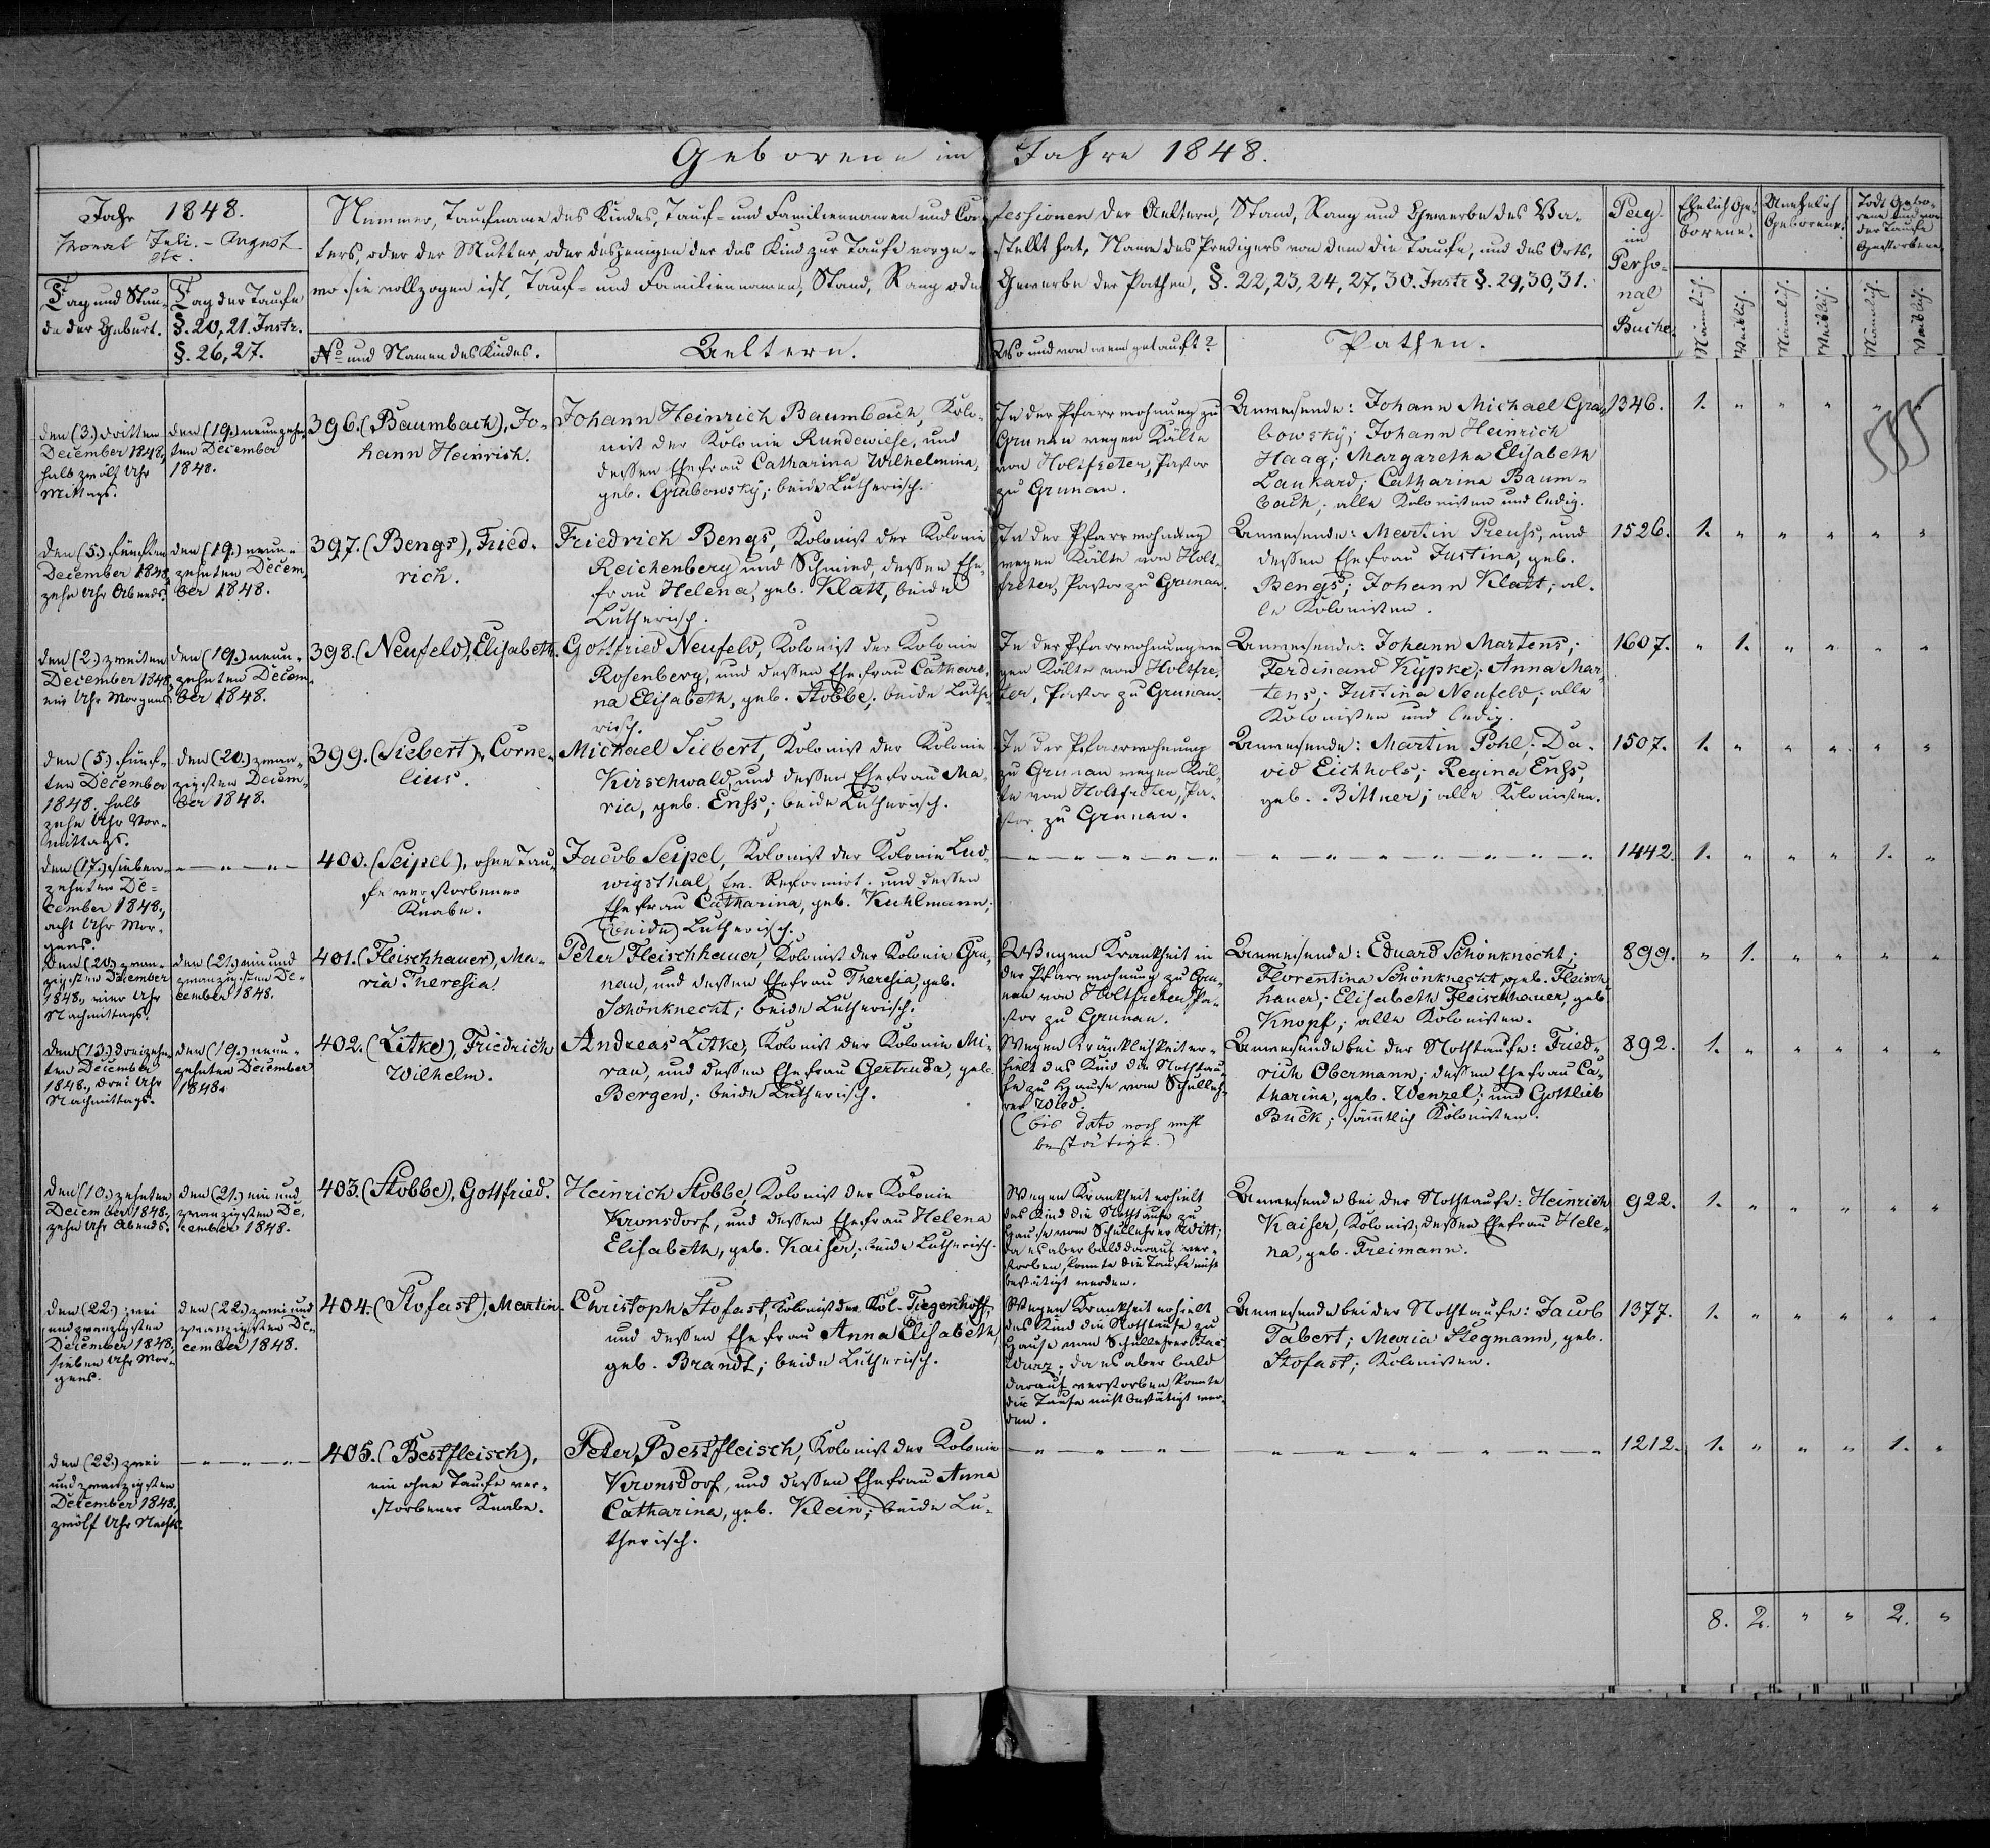 Geborene im Jahre 1848.
Jahr 1848.
Monat Juli. - August
etc.
Tag und Stun-
de der Geburt.
Tag der Taufe
§. 20, 21. Instr.
§. 26, 27.
Nummer, Taufname des Kindes, Tauf- und Familiennamen und Con-
fessionen der Aeltern, Stand, Rang und Gewerbe des Va-
ters, oder der Mutter, oder desjenigen der das Kind zur Taufe vorge-
stellt hat, Name des Predigers von dem die Taufe, und des Orts,
wo sie vollzogen ist, Tauf- und Familiennamen, Stand, Rang oder
Gewerbe der Pathen, §. 22, 23, 24, 27, 30. Instr §. 29, 30, 31.
No und Namen des Kindes.
Aeltern.
Wo und von wem getauft?
Pathen.
Pag.
im
Perso-
nal
Buche.
Ehelich Ge-
borene.
Unehelich
Geborene.
Todt Gebo-
rene und vor
der Taufe
Gestorbene.
Männlich.
Weiblich.
Männlich.
Weiblich.
Männlich.
Weiblich.
den (3.) dritten
December 1848,
halb zwölf Uhr
Mittags.
den (19.) neunzehn-
ten December
1848.
396. (Baumbach), Jo-
hann Heinrich.
Johann Heinrich Baumbach, Kolo-
nist der Kolonie Rundewiese, und
dessen Ehefrau Catharina Wilhelmina,
geb. Grabowsky; beide Lutherisch.
In der Pfarrwohnung zu
Grunau wegen Kälte
von Holtfreter, Pastor
zu Grunau.
Anwesende: Johann Michael Gra-
bowsky; Johann Heinrich
Haag; Margaretha Elisabeth
Laukard; Catharina Baum-
bach; alle Kolonisten und ledig.
1346. 1. " " " " "
den (5.) fünften
December 1848,
zehn Uhr Abends.
den (19.) neun-
zehnten Decem-
ber 1848.
397. (Bengs), Fried-
rich.
Friedrich Bengs, Kolonist der Kolonie
Reichenberg und Schmied, dessen Ehe-
frau Helena, geb. Klatt, beide
Lutherisch.
In der Pfarrwohnung
wegen Kälte von Holt-
freter, Pastor zu Grunau.
Anwesende: Martin Preuss, und
dessen Ehefrau Justina, geb.
Bengs; Johann Klatt; al-
le Kolonisten.
1526. 1. " " " " "
den (2.) zweiten
December 1848,
ein Uhr Morgens.
den (19.) neun-
zehnten Decem-
ber 1848.
398. (Neufeld), Elisabeth.
Gottfried Neufeld, Kolonist der Kolonie
Rosenberg, und dessen Ehefrau Cathari-
na Elisabeth, geb. Stobbe; beide Luthe-
risch.
In der Pfarrwohnung we-
gen Kälte von Holtfre-
ter, Pastor zu Grunau.
Anwesende: Johann Martens;
Ferdinand Kypke; Anna Mar-
tens; Justina Neufeld; alle
Kolonisten und ledig.
1607. " 1. " " " "
den (5.) fünf-
ten December
1848. halb
zehn Uhr Vor-
mittags.
den (20.) zwan-
zigsten Decem-
ber 1848.
399. (Siebert), Corne-
lius.
Michael Siebert, Kolonist der Kolonie
Kirschwald, und dessen Ehefrau Ma-
ria, geb. Enss; beide Lutherisch.
In der Pfarrwohnung
zu Grunau wegen Käl-
te von Holtfreter, Pa-
stor zu Grunau.
Anwesende: Martin Pohl; Da-
vid Eichhols; Regina Enss,
geb. Bittner; alle Kolonisten.
1507. 1. " " " " "
den (17.) sieben-
zehnten De-
cember 1848,
acht Uhr Mor-
gens.
– " – " – " –
400. (Seipel), ohne Tau-
fe verstorbener
Knabe.
Jacob Seipel, Kolonist der Kolonie Lud-
wigsthal, Ev. Reformirt, und dessen
Ehefrau Catharina, geb. Kuhlmann;
(beide) Lutherisch.
– " – " – " – " – "
" – " – " – " – " – "
1442. 1. " " " 1. "
den (20.) zwan-
zigsten December
1848, vier Uhr
Nachmittags.
den (21.) ein und
zwanzigsten De-
cember 1848.
401. (Fleischhauer), Ma-
ria Theresia.
Peter Fleischhauer, Kolonist der Kolonie Gru-
nau, und dessen Ehefrau Theresia, geb.
Schönknecht; beide Lutherisch.
Wegen Krankheit in
der Pfarrwohnung zu Gru-
nau von Holtfreter, Pa-
stor zu Grunau.
Anwesende: Eduard Schönknecht;
Florentina Schönknecht, geb. Fleisch-
hauer; Elisabeth Fleischhauer, geb.
Knopf; alle Kolonisten.
899. " 1. " " " "
den (13.) dreizehn-
ten December
1848, drei Uhr
Nachmittags.
den (19.) neun-
zehnten December
1848.
402. (Litke), Friedrich
Wilhelm.
Andreas Litke, Kolonist der Kolonie Mi-
rau, und dessen Ehefrau Gertruda, geb.
Bergen; beide Lutherisch.
Wegen Kränklichkeit er-
hielt das Kind die Nothtau-
fe zu Hause vom Schulleh-
rer
(bis dato noch nicht
bestätigt.)
Anwesende bei der Nothtaufe: Fried-
rich Obermann; dessen Ehefrau Ca-
tharina, geb. Wenzel; und Gottlieb
Buck; sämmtlich Kolonisten.
892. 1. " " " " "
den (10.) zehnten
December 1848,
zehn Uhr Abends.
den (21.) ein und
zwanzigsten De-
cember 1848.
403. (Stobbe), Gottfried.
Heinrich Stobbe, Kolonist der Kolonie
Kronsdorf, und dessen Ehefrau Helena
Elisabeth, geb. Kaiser; beide Lutherisch.
Wegen Krankheit erhielt
das Kind die Nothtaufe zu
Hause vom Schullehrer Witt;
da es aber bald darauf ver-
storben, konnte die Taufe nicht
bestätigt werden.
Anwesende bei der Nothtaufe: Heinrich
Kaiser, Kolonist; dessen Ehefrau Hele-
na, geb. Freimann.
922. 1. " " " " "
den (22.) zwei
und zwanzigsten
December 1848,
sieben Uhr Mor-
gens.
den (22.) zwei und
zwanzigsten De-
cember 1848.
404. (Stofast), Martin.
Christoph Stofast, Kolonist der Kol. Tiegenhoff,
und dessen Ehefrau Anna Elisabeth,
geb. Brandt; beide Lutherisch.
Wegen Krankheit erhielt
das Kind die Nothtaufe zu
Hause vom Schullehrer
da es aber bald
darauf verstorben, konnte
die Taufe nicht bestätigt wer-
den.
Anwesende bei der Nothtaufe: Jacob
Tabert; Maria Stegmann, geb.
Stofast; Kolonisten.
1377. 1. " " " " "
den (22.) zwei
und zwanzigsten
December 1848,
zwölf Uhr Nachts.
– " – " – " –
405. (Bestfleisch),
ein ohne Taufe ver-
storbener Knabe.
Peter Bestfleisch, Kolonist der Kolonie
Kronsdorf, und dessen Ehefrau Anna
Catharina, geb. Klein; beide Lu-
therisch.
– " – " – " – "
" – " – " – " – " – "
1212. 1. " " " 1. "
8. 2. " " 2. "